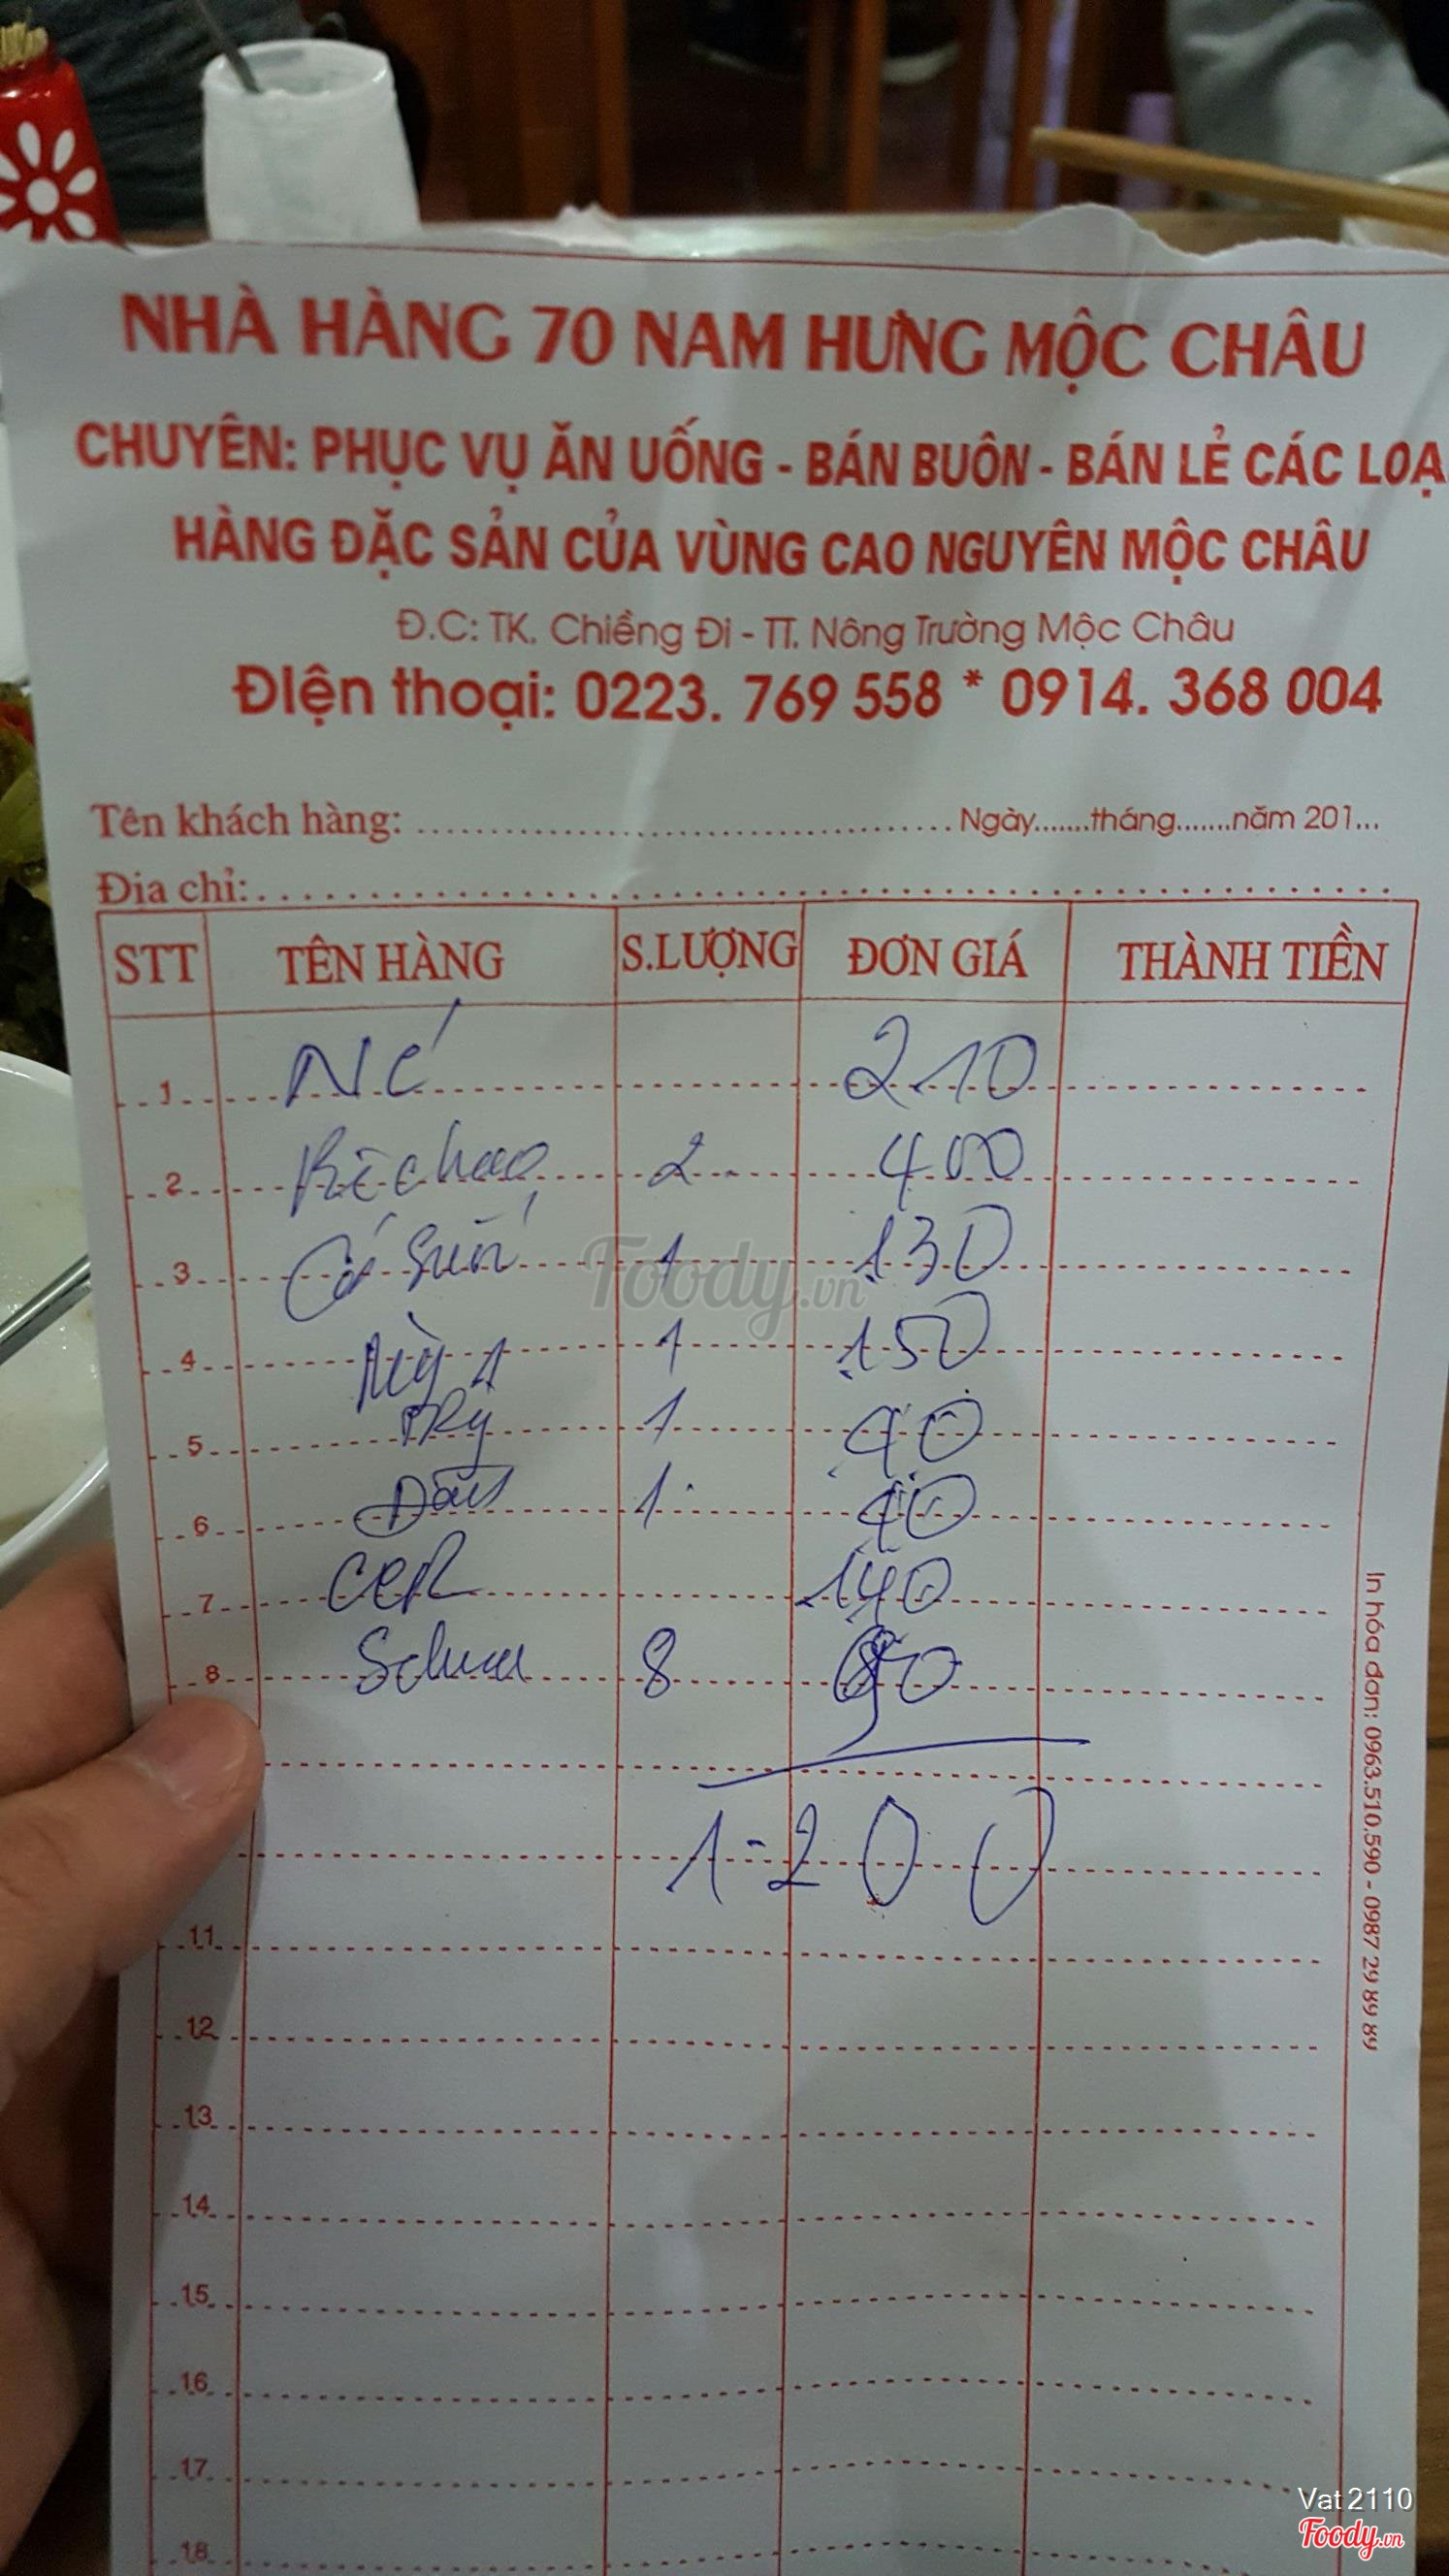 NHÀ HÀNG 70 NAM HƯNG MỘC CHÂU
CHUYÊN: PHỤC VỤ ĂN UỐNG - BÁN BUÔN - BÁN LẺ CÁC LOẠ
HÀNG ĐẶC SẢN CỦA VÙNG CAO NGUYÊN MỘC CHÂU
Đ.C: TK. Chiềng Đi - TT. Nông Trường Mộc Châu
Điện thoại: 0223. 769 558 * 0914. 368 004
Tên khách hàng: ........ Ngày.......tháng.......năm 201...
Địa chỉ: ........
STT TÊN HÀNG S.LƯỢNG ĐƠN GIÁ THÀNH TIỀN
1 210
2 2 400
3 1 130
4 1 150
5 1 40
6 Đậu 1 40
7 140
8 8
1-200
11
12
13
14
15
16
17
18
In hóa đơn: 0963.510.590 - 0987 29 89 89
Foody.vn
Vat2110
Foody.vn